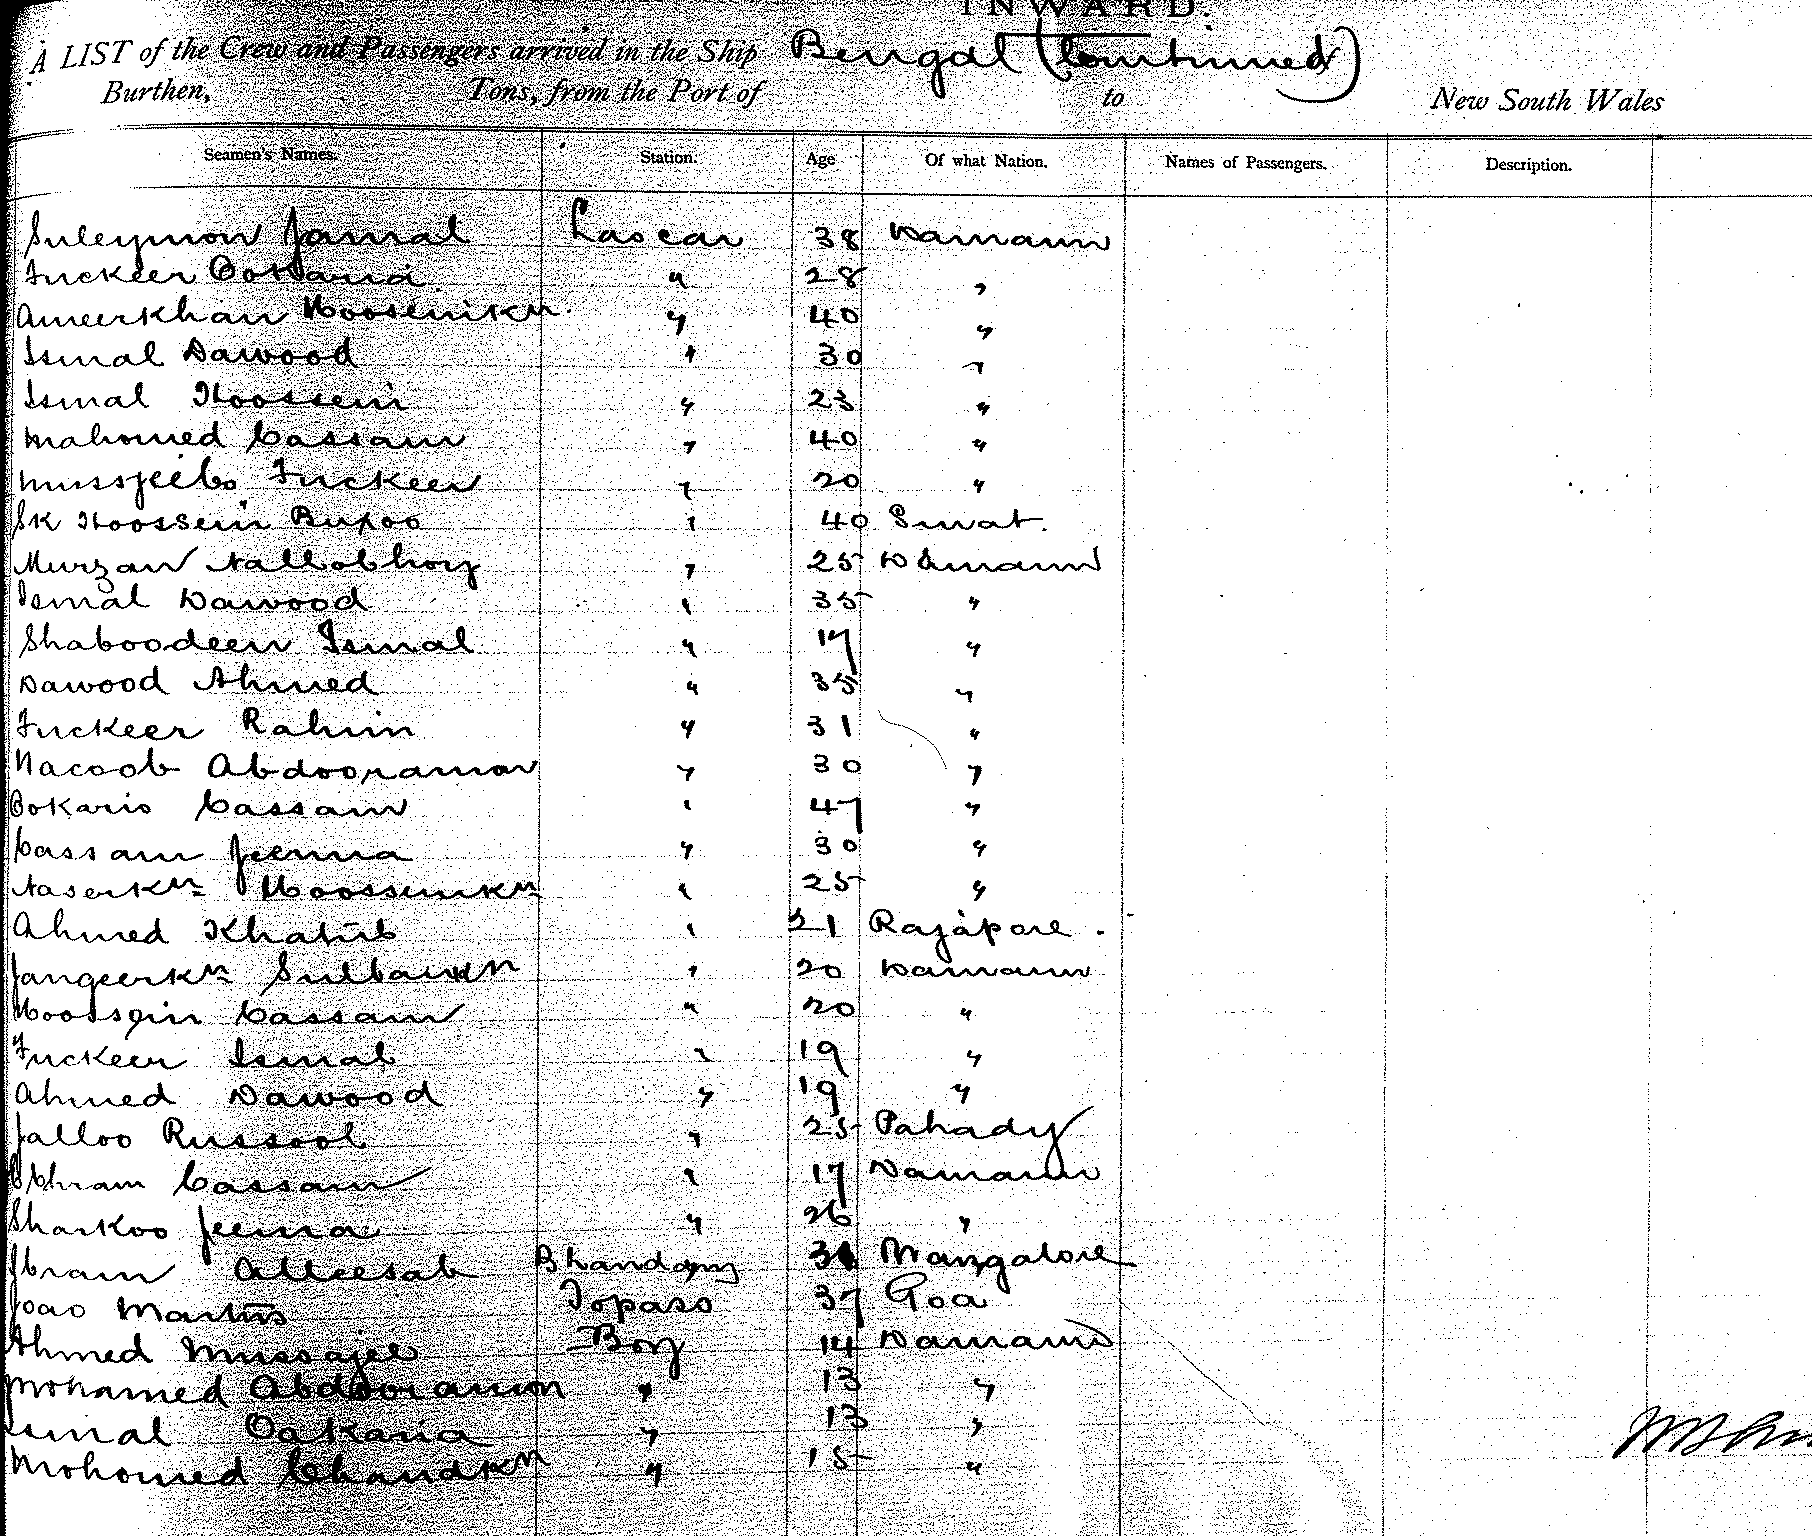 INWARD.
A LIST of the Crew and Passengers arrived in the Ship Bengal (Continued)
Burthen, Tons, from the Port of to New South Wales
Seamen's Names. Station. Age Of what Nation. Names of Passengers. Description.
Suleymon Jamal Lascar 38 Damaun
Fuckeer Cokaria " 28 "
Ameerkhan Hooseinkn. " 40 "
Ismal Dawood " 30 "
Ismal Hoossein " 23 "
Mahomed Cassam " 40 "
Mussjeebo Fuckeer " 20 "
Sk Hoossein Bupoo " 40 Surat.
Murzan Nallobhoy " 25 Damaun
Ismal Dawood " 35 "
Shaboodeen Ismal " 17 "
Dawood Ahmed " 35 "
Fuckeer Rahim " 31 "
Nacoob Abdooraman " 30 "
Cokario Cassam " 47 "
Cassam Jeema " 30 "
Naserkn Hoosseinkn " 25 "
Ahmed Khatib " 21 Rajapore.
Jangeerkn Sultankn " 20 Damaun
Hoossein Cassam " 20 "
Fuckeer Ismal " 19 "
Ahmed Dawood " 19 "
Jalloo Russool " 25 Pahady
Ebhram Cassam " 17 Damaun
Sharkoo Jeema " 26 "
Ibram Alleesab Bhandary Mangalore
Joao Martins Topaso 37 Goa
Ahmed Mussajee Boy 14 Damaun
Mohamed Abdooramon " 13 "
Ismal Cakaria " 13 "
Mohomed Chandkn " 15 "